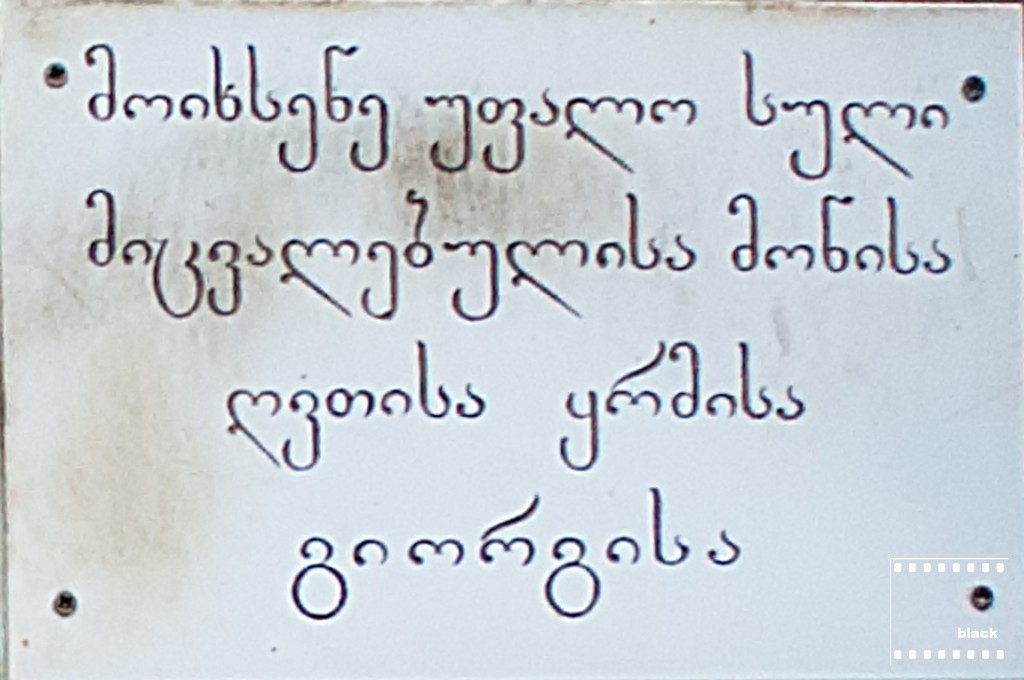 მოიხსენე უფალო სული
მიცვალებულისა მონისა
ღვთისა ყრმისა
გიორგისა
black